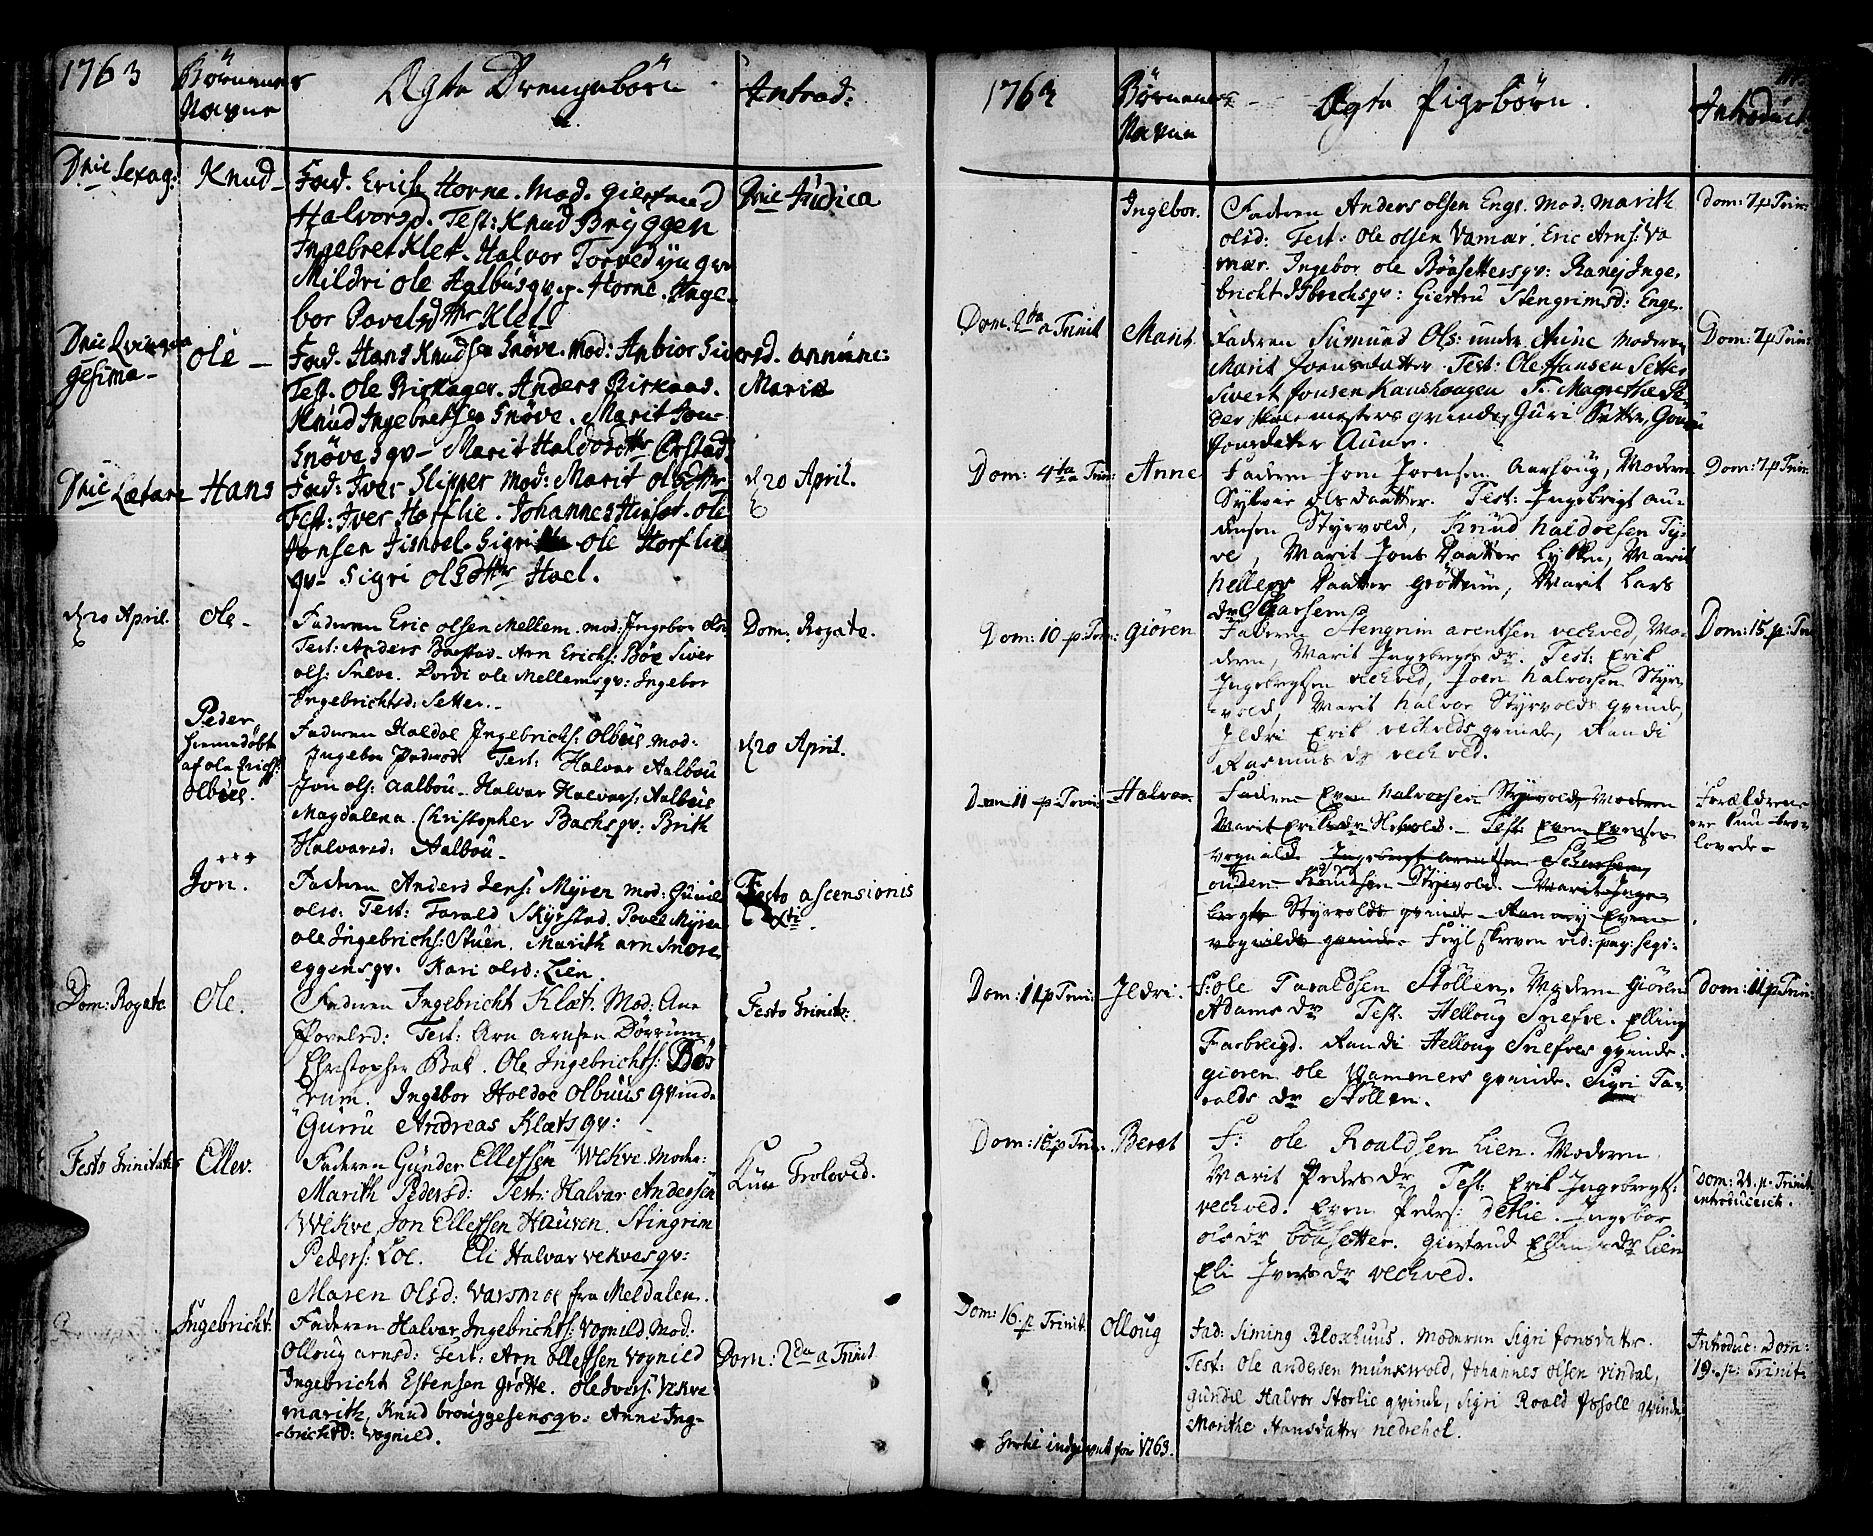 1763
Børnenes
Navne
Ægte Drengebørn
Introd:
Dnic Sexag:
Knud
Fad. Erich Horne. Mod. Giertrud
Halvorsd. Test: Knud Bryggen
Ingebret Klet. Halvor Torve
Mildri Ole Halbusqv. Horne. Inge-
bor Povelsdttr Klet
Dnic Judica
Dnic Qvinqva
gesima
Ole
Fad. Hans Knudsen Snøve. Mod: Anbior Siversd.
Test. Ole Riskager. Anders Riskaas.
Knud Ingebretsen Snøve. Marit Jon
Snøvesqv. Marit Haldosdttr Ørstad
annunc:
Mariæ
Dnic Lætare
Hans
Fad: Iver Slipper Mod: Marit Olsdttr
Test: Iver Horflie. Johannes Ole
Jonsen Sigri Ole Storflie
qv- Sigri Olsdttr Hoel.
d 20 April.
d 20 April.
Ole
Faderen Eric Olsen Mellem. mod: Ingebor Olsd
Test: Anders Arn Erichs: Bøe Siver
ols: Sneve. Dordi Ole Mellemsqv: Ingebor
Ingebrichtsd: Setter.
Dom: Rogate.
Peder
hiemedøbt
af Ola Erichs:
Olbues.
Faderen Haldoe Ingebrichs: Olbues mod:
Ingebor Pedersd: Test: Halvar Aalbou
Jon ols: Aalbou. Halvar Halvars: Aalbous
Magdalena Christopher Bachsqv: Brith
Halvarsd: Aalbou.
d 20 April.
+++
Jon.
Faderen Anders Jens: Myren Mod: Gunil
olsd: Test: Farald Skyrstad. Povel Myren
Ole Ingebrichs: Stuen. Marith arn Snove
eggensqv. Kari olsd: Lien.
Festo ascensionis
Xti.
Dom: Rogate
Ole.
Faderen Ingebricht Klæt. Mod: Ane
Povelsd: Test: Arn Arnsen Dørrum
Christopher Bak. Ole Ingebrichts: Dør
rum. Ingebor Holdoe Olbuus Qvinde
Gurru Andreas Klætsqv:
Festo Trinit:
Festo Trinitatis
Ellev.
Faderen Gunder Ellefsen Wekve. Moder:
Marith Pedersd: Test: Halvar Andersen
Wekve, Jon Ellefsen Hauven. Stingrim
Peders: Loe. Eli Halvar Vekvesqv:
Maren Olsd: Varsmoe fra Meldalen.
Kun Trolovid.
Ingebricht.
Faderen Halvar Ingebrichts: Vognild. Mod:
Olloug Arnsd: Test: Arn Ollefsen Vognild
Ingebricht Estensen Grøtte. Ole Ivers: Vekve
Marith, Knud brouggesensqv: Anne Ing-
brichtd: Vognild.
Dom: 2da a Trinit
1763
Børnenes
Navne
Ægte Pigebørn.
Introduct:
Ingebor.
Faderen Anders olsen Enge. Mod: Marith
olsd: Test: Ole olsen Vamær. Eric Arns: Va
mær. Ingebor Ole Bøasettersqv: Ranej Inge,
bricht Ibrechsqv: Giertru Stengrimsd: Enge.
Dom: 7 p Trin:
Dom: 2da a Trinit
Marit.
Faderen Simund Ols: under Aune Moderen
Marit Jonsdatter. Test: Ole Hansen Setter
Sivert Jonsen Kaushaagen Magrethe Pe
der skolemesters qvinde, Guri Sætter, Gouru
Jonsdater Aune.
Dom: 7 p Trin:
Dom: 4ta a Trin:
Anne
Faderen Joen Joensen Aarhoug, Moderen
Sylvie olsdaatter. Test: Ingebrigt au-
densen Styrvold, Knud haldoesen Ty-
ve, Marit Jons Daatter Lykken, Marit
hellegs Daatter Grøttum, Marit Lars
dr Skarsem.
Dom: 7 p Trin:
Dom: 10 p: Trin:
Giøren
Faderen Stengrim arentsen vechved, Mo-
deren, Marit Ingebrigts dr. Test: Erik
Ingebrigtsen vechved, Joen halvorsen Styr-
vold, Marit halvor Styrvolds qvinde,
Ildri Erik vechveds qvinde, Randi
Rasmus dr vechved.
Dom: 15 p: Trin
Dom 11 p Trin:
Halvor
Faderen Even halvorsen Styrvold, Moderen
Marit Eriks dr Hefvold. Test: Even Evensen
vognild. Ingebrigt arentsen Skarsem,
ouden Knudsen Styrvold. Marit Inge-
brigts Styrvolds qvinde Rannej Even
vognilds qvinde. Fejl skreven vid: pag: seqv:
Forældrene
ere kun tro-
lovede
Dom: 11 p Trin:
Ildri.
F: ole Taraldsen Stöllen. Moderen Giøren
Adams Dr Test. Helloug Snefve. Elling
Farbregd. Randi Helloug Snefves qvinde.
giøren ole Vammers qvinde. Sigri Ta-
ralds dr Støllen.
Dom: 11 p Trin:
Dom: 15 p Trin.
Beret
F: ole Roaldsen Lien. Moderen,
Marit Peders Dr Test: Erik Ingebregts:
vechved. Even Peders: detlie. Ingebor
ols dr Bøasetter. Giertrud Ellins Dr Lien
Eli Ivers Dr vechved.
Dom: 21. p. Trinit.
introducerit.
Dom: 16. p Trinit
Olloug
Fad: Siming Bloxhuus. Moderen Sigri Jonsdatter.
Test: Ole andersen munkvold, Johannes olsen vindal,
Gundil Halvor Storlie qvinde, Sigri Roald Posoll qvinde
Marthe Hansdatter nedrehol.
Introduc: Dom:
19. p: Trinit:
hertil indgivet for 1763.